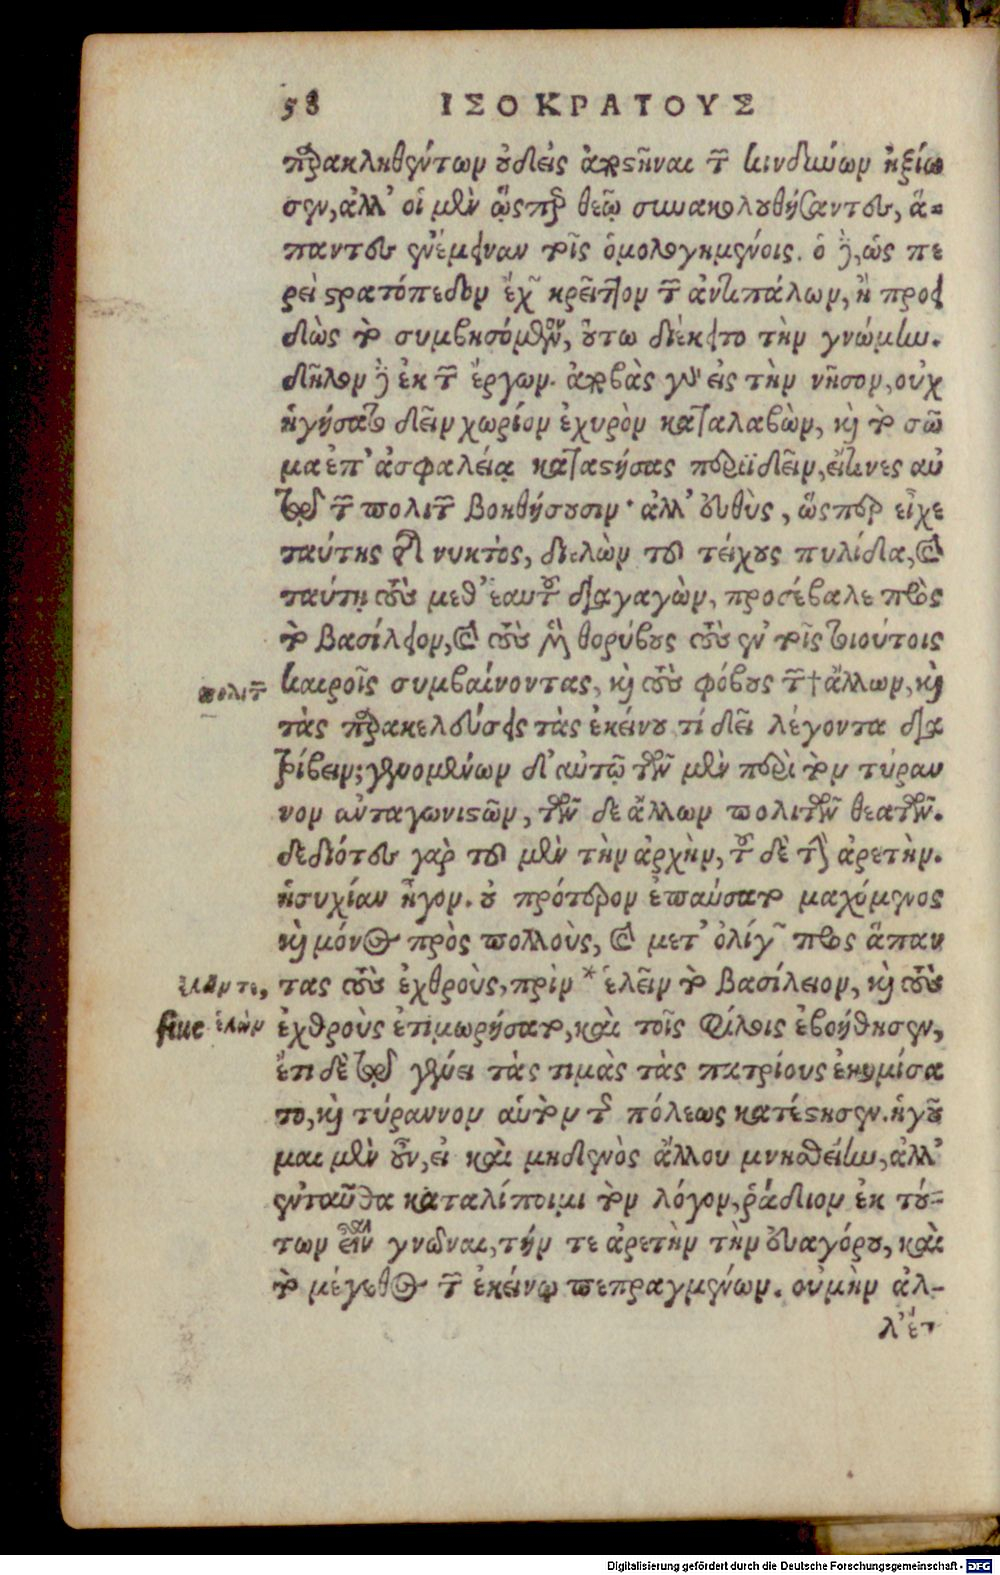 58 ΙΣΟΚΡΑΤΟΥΣ
παρακληθέντων οὐδεὶς ἀποστῆναι τῶν κινδύνων ἠξίω
σεν, ἀλλ' οἱ μὲν ὥσπερ θεῷ συνακολουθήσαντες, ἅ-
παντες ἐνέμειναν τοῖς ὁμολογημένοις. ὁ δὲ, ὡς πε
ρεὶ στρατόπεδον ἔχων κρεῖττον τῶν ἀντιπάλων, ἢ προει
δὼς τὸ συμβησόμενον, οὕτω διέκειτο τὴν γνώμην.
δῆλον δὲ ἐκ τῶν ἔργων. ἀποβὰς γὰρ εἰς τὴν νῆσον, οὐχ
ἡγήσατο δεῖν χωρίον ἐχυρὸν καταλαβὼν, καὶ τὸ σῶ
μα ἐπ' ἀσφαλείᾳ καταστήσας περιϊδεῖν, εἴ τινες αὐ
τῷ τῶν πολιτῶν βοηθήσουσιν· ἀλλ' εὐθὺς, ὥσπερ εἶχε
ταύτης τῆς νυκτὸς, διελὼν τοῦ τείχους πυλίδα, καὶ
ταύτῃ τοὺς μεθ' ἑαυτοῦ διαγαγὼν, προσέβαλε πρὸς
τὸ βασίλειον, καὶ τοὺς μὲν θορύβους τοὺς ἐν τοῖς τοιούτοις
καιροῖς συμβαίνοντας, καὶ τοὺς φόβους τῶν † ἄλλων, καὶ
πολιτῶν
τὰς παρακελεύσεις τὰς ἐκείνου τί δεῖ λέγοντα δια
τρίβειν; γενομένων δ' αὐτῷ τῶν μὲν περὶ τὸν τύραν
νον ἀνταγωνιστῶν, τῶν δὲ ἄλλων πολιτῶν θεατῶν.
δεδιότες γὰρ τοῦ μὲν τὴν ἀρχὴν, τοῦ δὲ τὴν ἀρετὴν.
ἡσυχίαν ἦγον. οὐ πρότερον ἐπαύσατο μαχόμενος
καὶ μόνος πρὸς πολλοὺς, καὶ μετ' ὀλίγων πρὸς ἅπαν
τας τοὺς ἐχθροὺς, πρὶν * ἑλεῖν τὸ βασίλειον, καὶ τοὺς
siue ἑλὼν
ἐχθροὺς ἐτιμωρήσατο, καὶ τοῖς φίλοις ἐβοήθησεν,
ἔτι δὲ τῷ γένει τὰς τιμὰς τὰς πατρίους ἐκομίσα
το, καὶ τύραννον αὑτὸν τῆς πόλεως κατέστησεν. ἡγοῦ
μαι μὲν οὖν, εἰ καὶ μηδενὸς ἄλλου μνησθείην, ἀλλ'
ἐνταῦθα καταλίποιμι τὸν λόγον, ῥάδιον ἐκ τού-
των εἶναι γνῶναι, τήν τε ἀρετὴν τὴν εὐαγόρου, καὶ
τὸ μέγεθος τῶν ἐκείνῳ πεπραγμένων. οὐ μὴν ἀλ-
λ' ἔτ
Digitalisierung gefördert durch die Deutsche Forschungsgemeinschaft - DFG